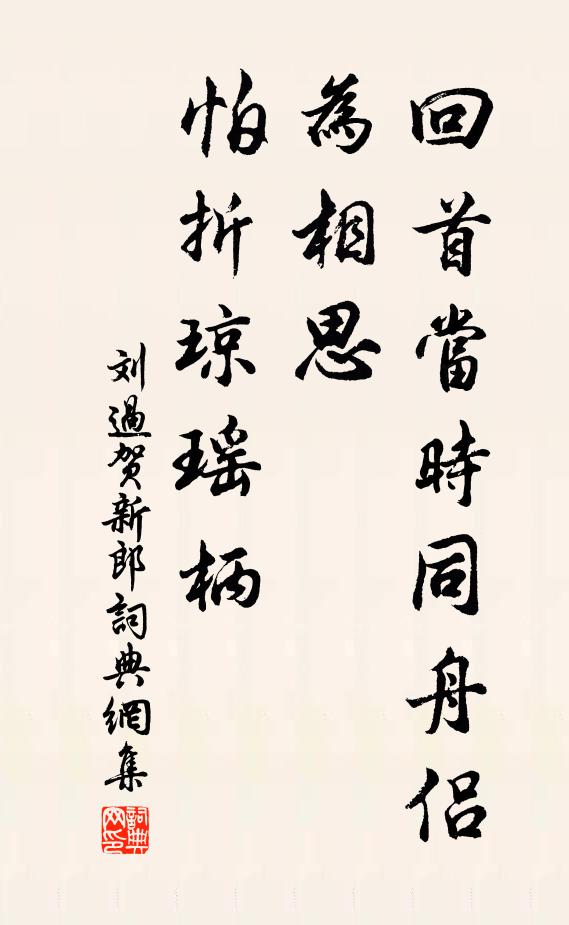 回首當時同舟侣
為相思
怕折琼瑶柄
刘過贺新郎詞典網集
詞典网印